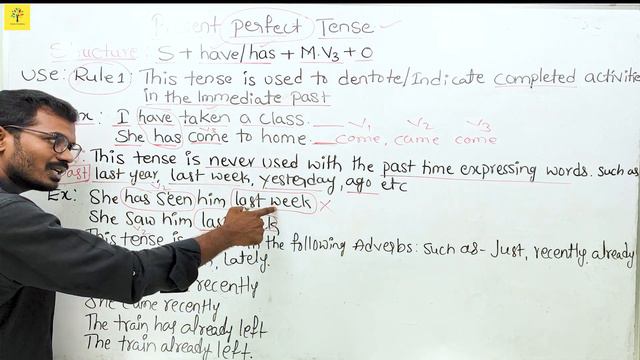 Present perfect Tense
Structure: S + have/has + M.V3 + O
USE: Rule 1: This tense is used to dentote/Indicate completed activitie
in the Immediate past
Ex: I have taken a class. V1 V2 V3
She has come to home. come, came come
This tense is never used with the past time expressing words. such as
last year, last week, yesterday, ago etc
Ex: She has seen him last week ×
She saw him last
This tense is the following Adverbs: such as- Just, recently, already
lately.
recently
She came recently
The train has already left
The train already left.